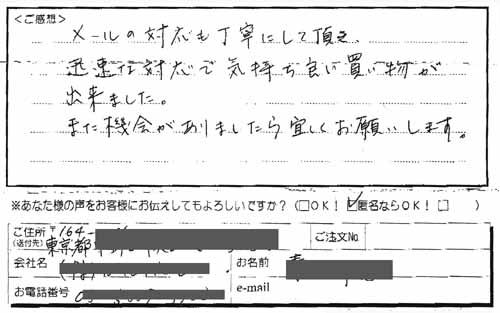 ＜ご感想＞
メールの対応も丁寧にして頂き、
迅速な対応で気持ち良い買い物が
出来ました。
また機会がありましたら宜しくお願いします。
※あなた様の声をお客様にお伝えしてもよろしいですか？（□OK！ ☑匿名ならOK！ □ ）
ご住所 〒164-
(送付先) 東京都
ご注文No
会社名
お名前
お電話番号
e-mail